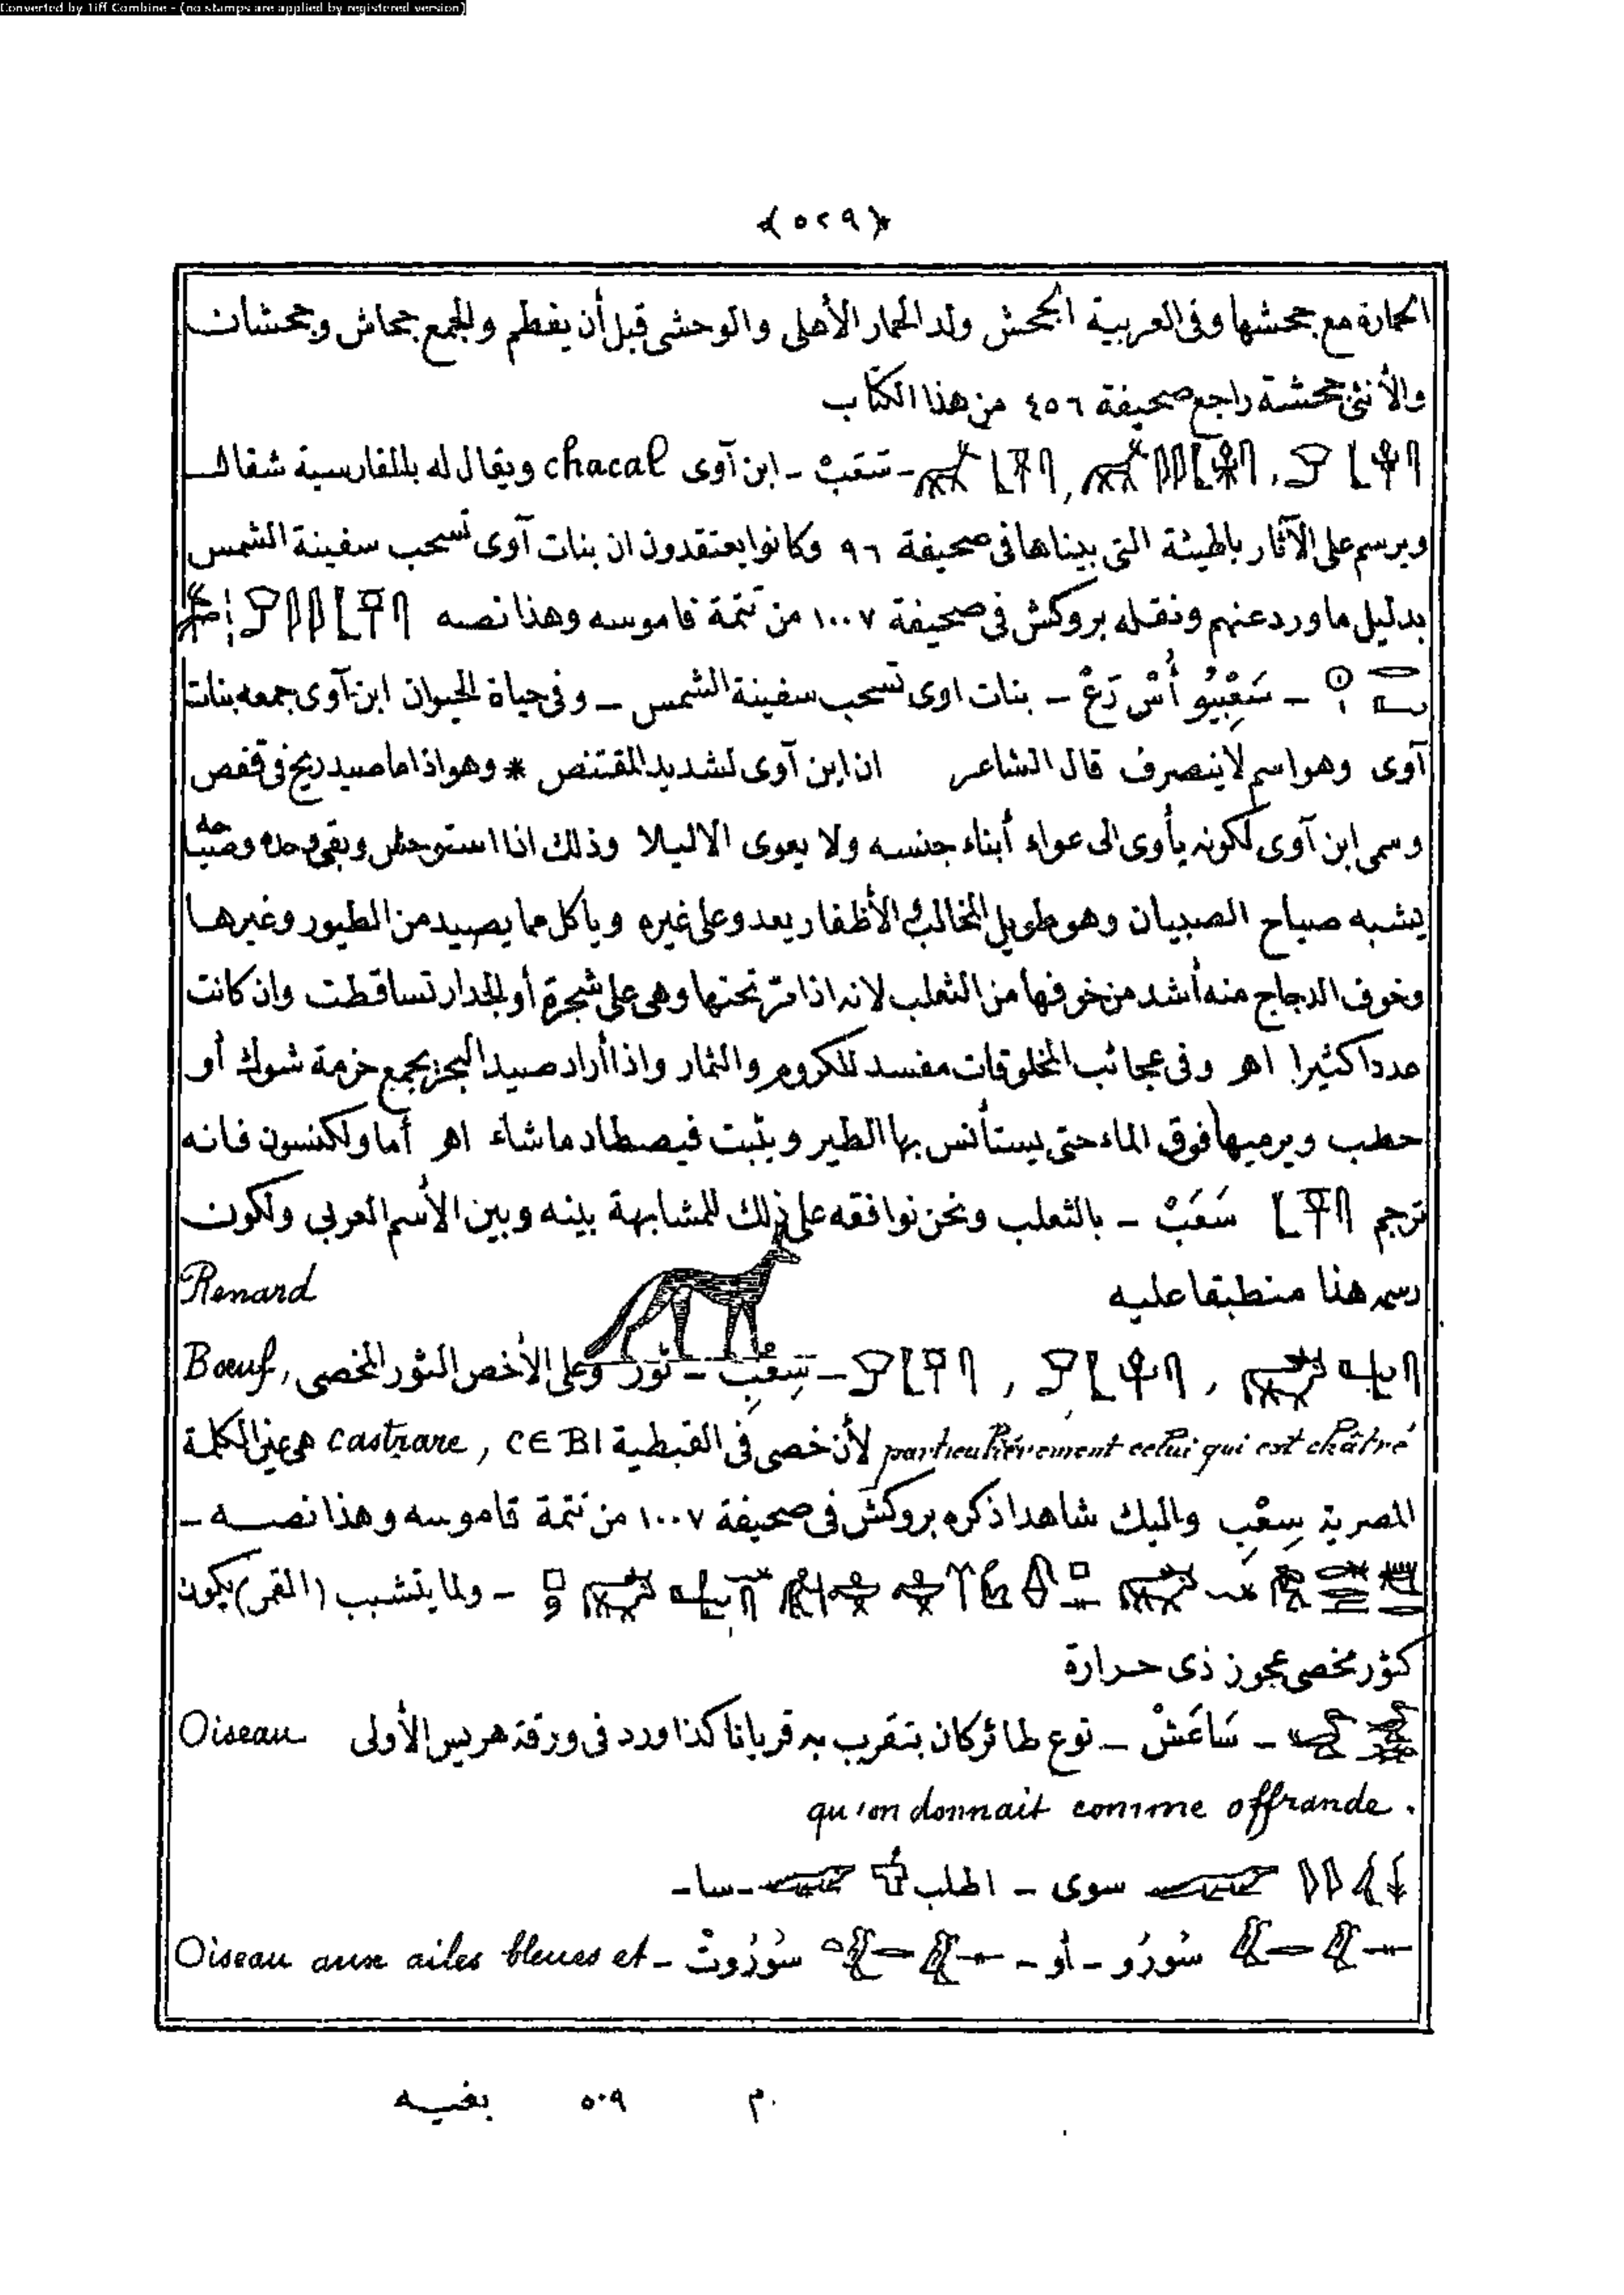 Converted by Tiff Combine - (no stamps are applied by registered version)
﴿٥٢٩﴾
الحمارة مع جحشها وفى العربية الجحش ولد الحمار الأهلى والوحشى قبل أن يفطم والجمع جحاش وجحشان
والأنثى جحشة راجع صحيفة ٤٥٦ من هذا الكتاب
سَعَبْ - ابن آوى chacal ويقال له بالفارسية شغال
ويرسم على الآثار بالهيئة التى بيناها فى صحيفة ٩٦ وكانوا يعتقدون ان بنات آوى تسحب سفينة الشمس
بدليل ما ورد عنهم ونقله بروكش فى صحيفة ١٠٠٧ من تتمة قاموسه وهذا نصه
- سَعْبِيُو أُسْ رَعْ - بنات اوى تسحب سفينة الشمس - وفى حياة الحيوان ابن آوى جمعه بنات
آوى وهو اسم لا ينصرف قال الشاعر ان ابن آوى لشديد المقتنص * وهو اذا ما صيد ريح فى قفص
وسمى ابن آوى لكونه يأوى الى عواء أبناء جنسه ولا يعوى الا ليلا وذلك اذا استوحش وبقى وحده وصياحه
يشبه صياح الصبيان وهو طويل المخالب والأظفار يعدو على غيره ويأكل مما يصيد من الطيور وغيرها
وخوف الدجاج منه أشد من خوفها من الثعلب لانه اذا مرّ تحتها وهى على شجرة أو الجدار تساقطت وان كانت
عددا كثيرا اهـ وفى عجائب المخلوقات مفسد للكروم والثمار واذا أراد صيد البحر يجمع حزمة شوك أو
حطب ويرميها فوق الماء حتى يستأنس بها الطير ويثبت فيصطاد ما شاء اهـ أما ولكنسون فانه
ترجم سَعَبْ - بالثعلب ونحن نوافقه على ذلك للمشابهة بينه وبين الأسم العربى ولكون
رسمه هنا منطبقا عليه Renard
- سِعْبِ - ثور وعلى الأخص الثور المخصى Bœuf,
particulièrement celui qui est châtré لأن خصى فى القبطية castrare, CEBI هى عين الكلمة
المصرية سِعْبِ واليك شاهدا ذكره بروكش فى صحيفة ١٠٠٧ من تتمة قاموسه وهذا نصه -
- ولما يتشبب (القمر) يكون
كثور مخصى عجوز ذى حرارة
- سَاعَشْ - نوع طائر كان يتقرب به قربانا كذا ورد فى ورقة هريس الأولى Oiseau
qu'on donnait comme offrande.
سوى - اطلب - سا -
سُورُو - أو - سُورُوتْ - Oiseau aux ailes bleues et
م ٥٠٩ بغيه